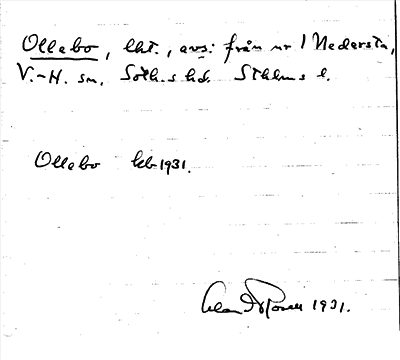 Ollebo, lht., avs. från nr 1 Nedersta,
V.-H. sn, Soth.s hd. Sthlms l.
Ollebo kb 1931.
1931.